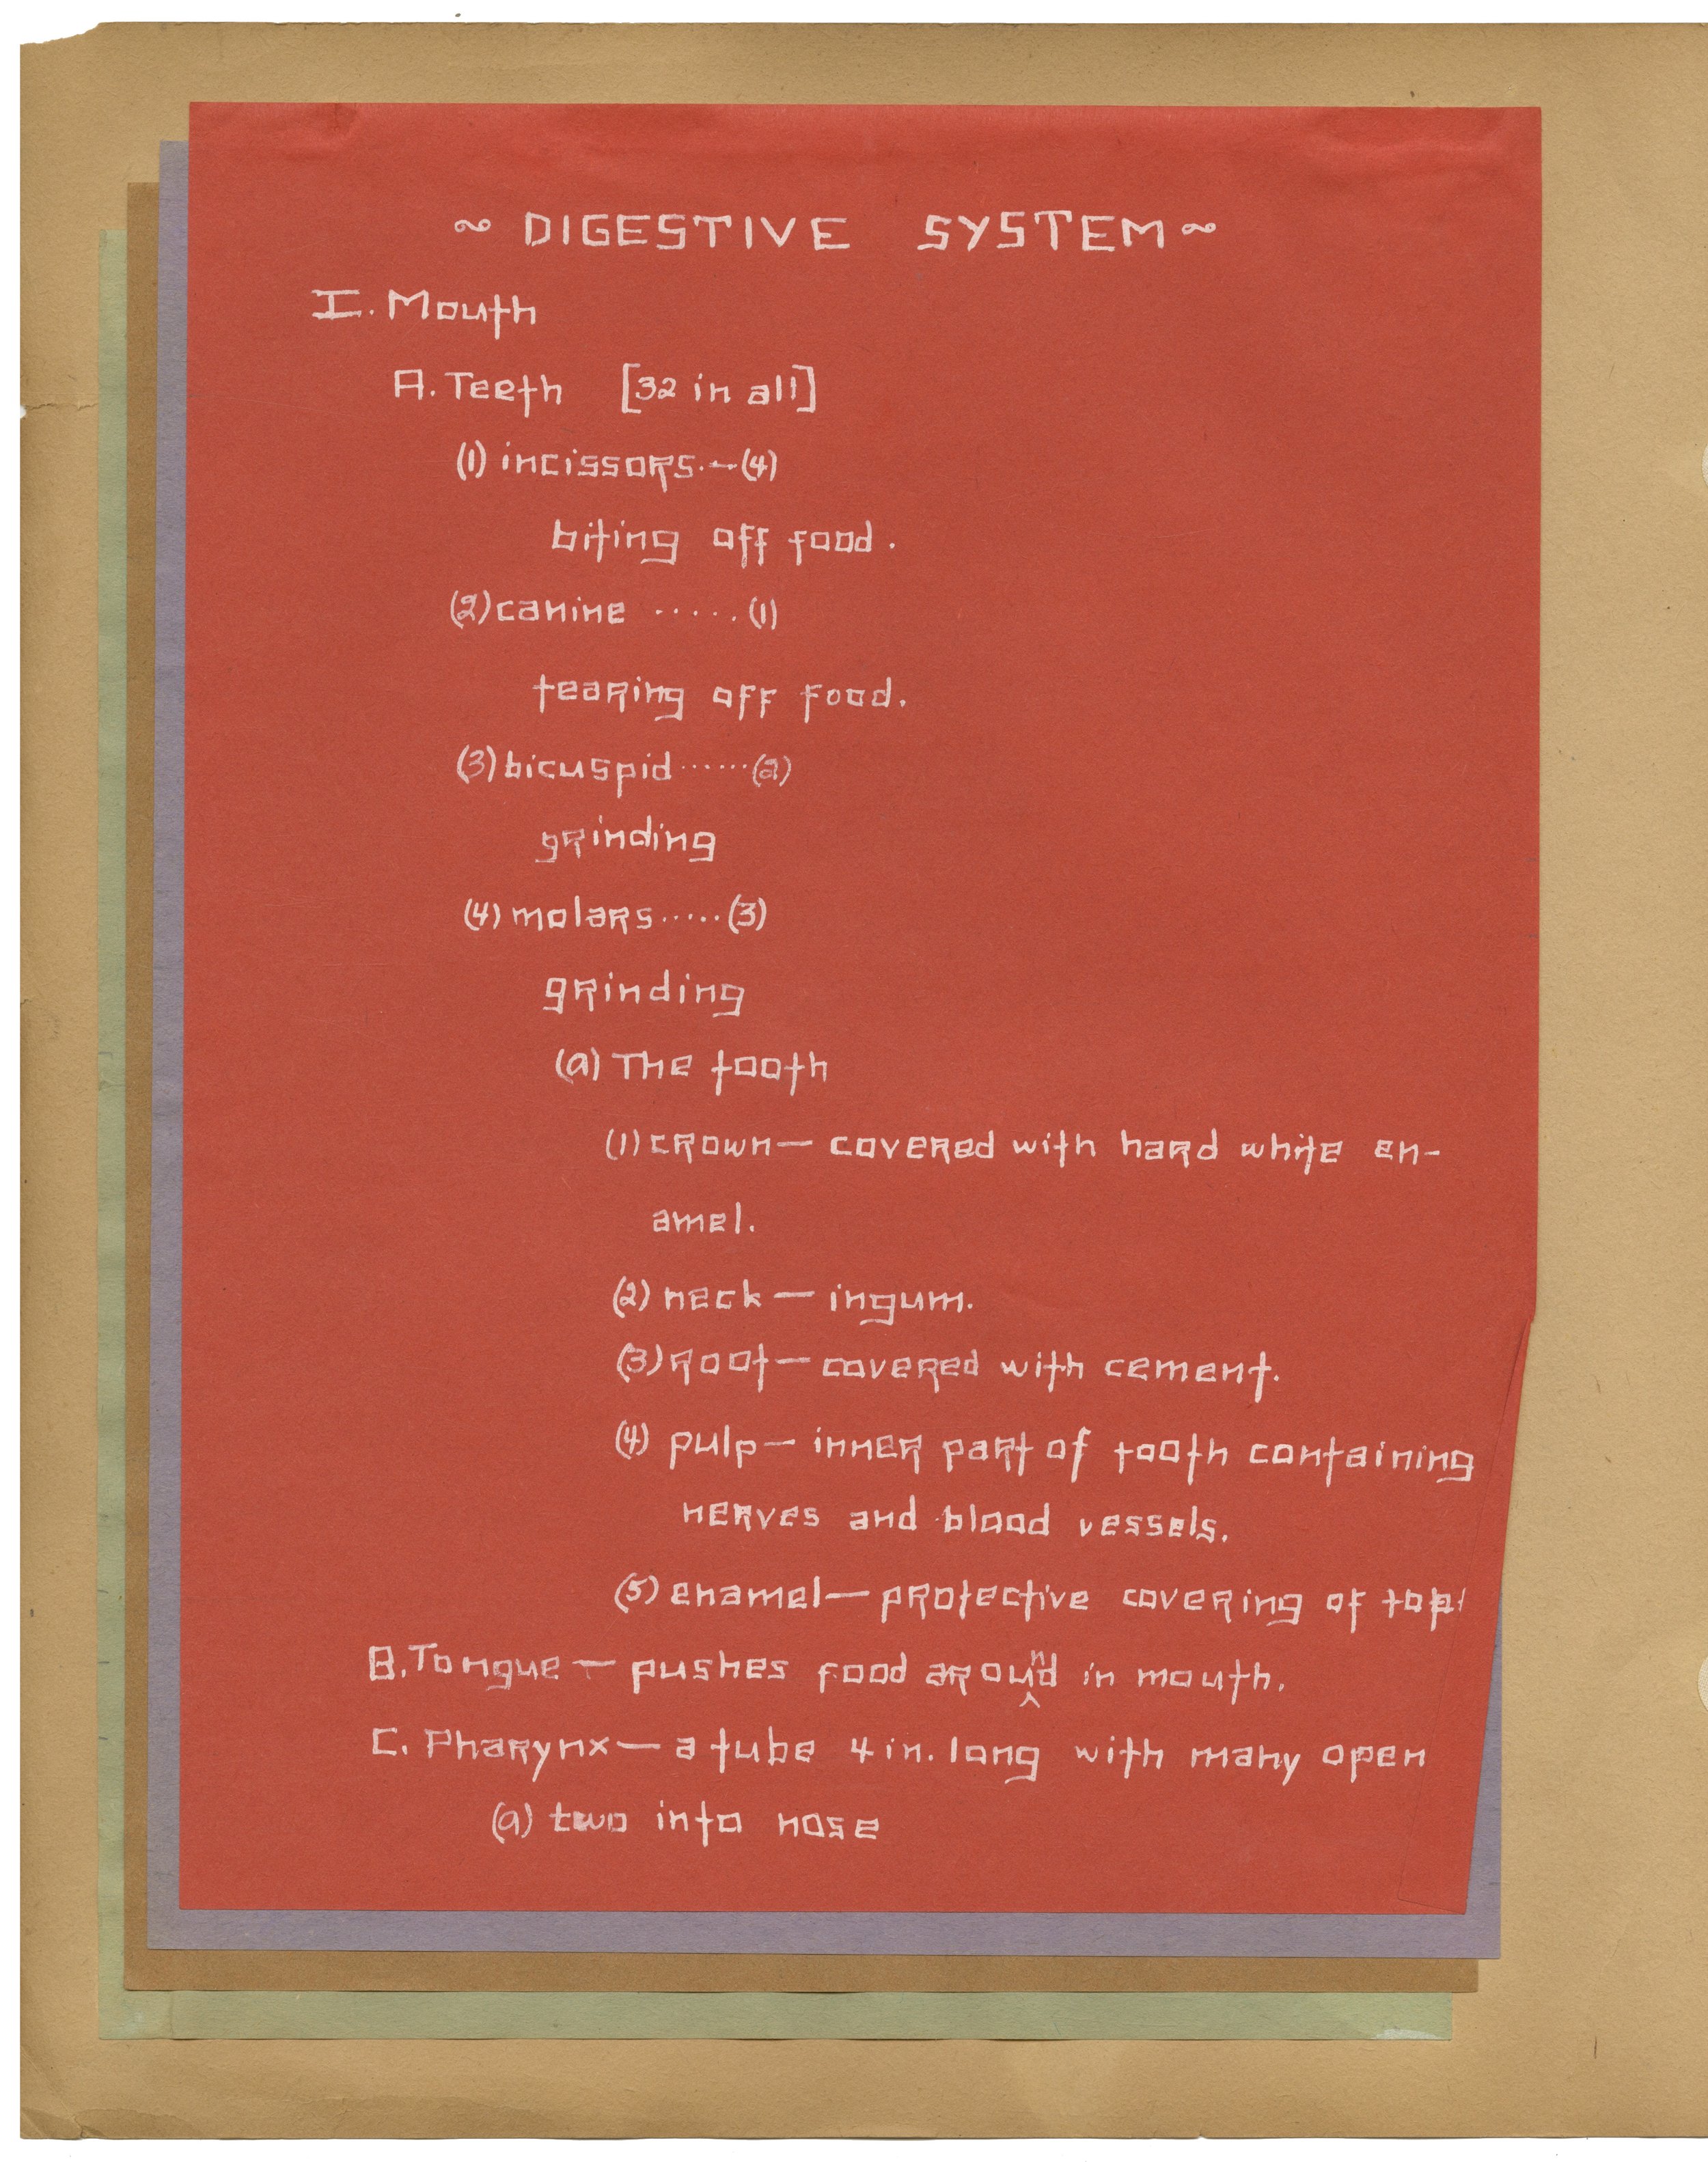 ~ DIGESTIVE SYSTEM ~
I. Mouth
A. Teeth [32 in all]
(1) incissors.—(4)
biting off food.
(2) canine ......(1)
tearing off food.
(3) bicuspid ......(2)
grinding
(4) molars.....(3)
grinding
(a) The tooth
(1) crown— covered with hard white en-
amel.
(2) neck — ingum.
(3) root— covered with cement.
(4) pulp— inner part of tooth containing
nerves and blood vessels.
(5) enamel— protective covering of
B. Tongue — pushes food around in mouth.
C. Pharynx— a tube 4 in. long with many open
(a) two into nose